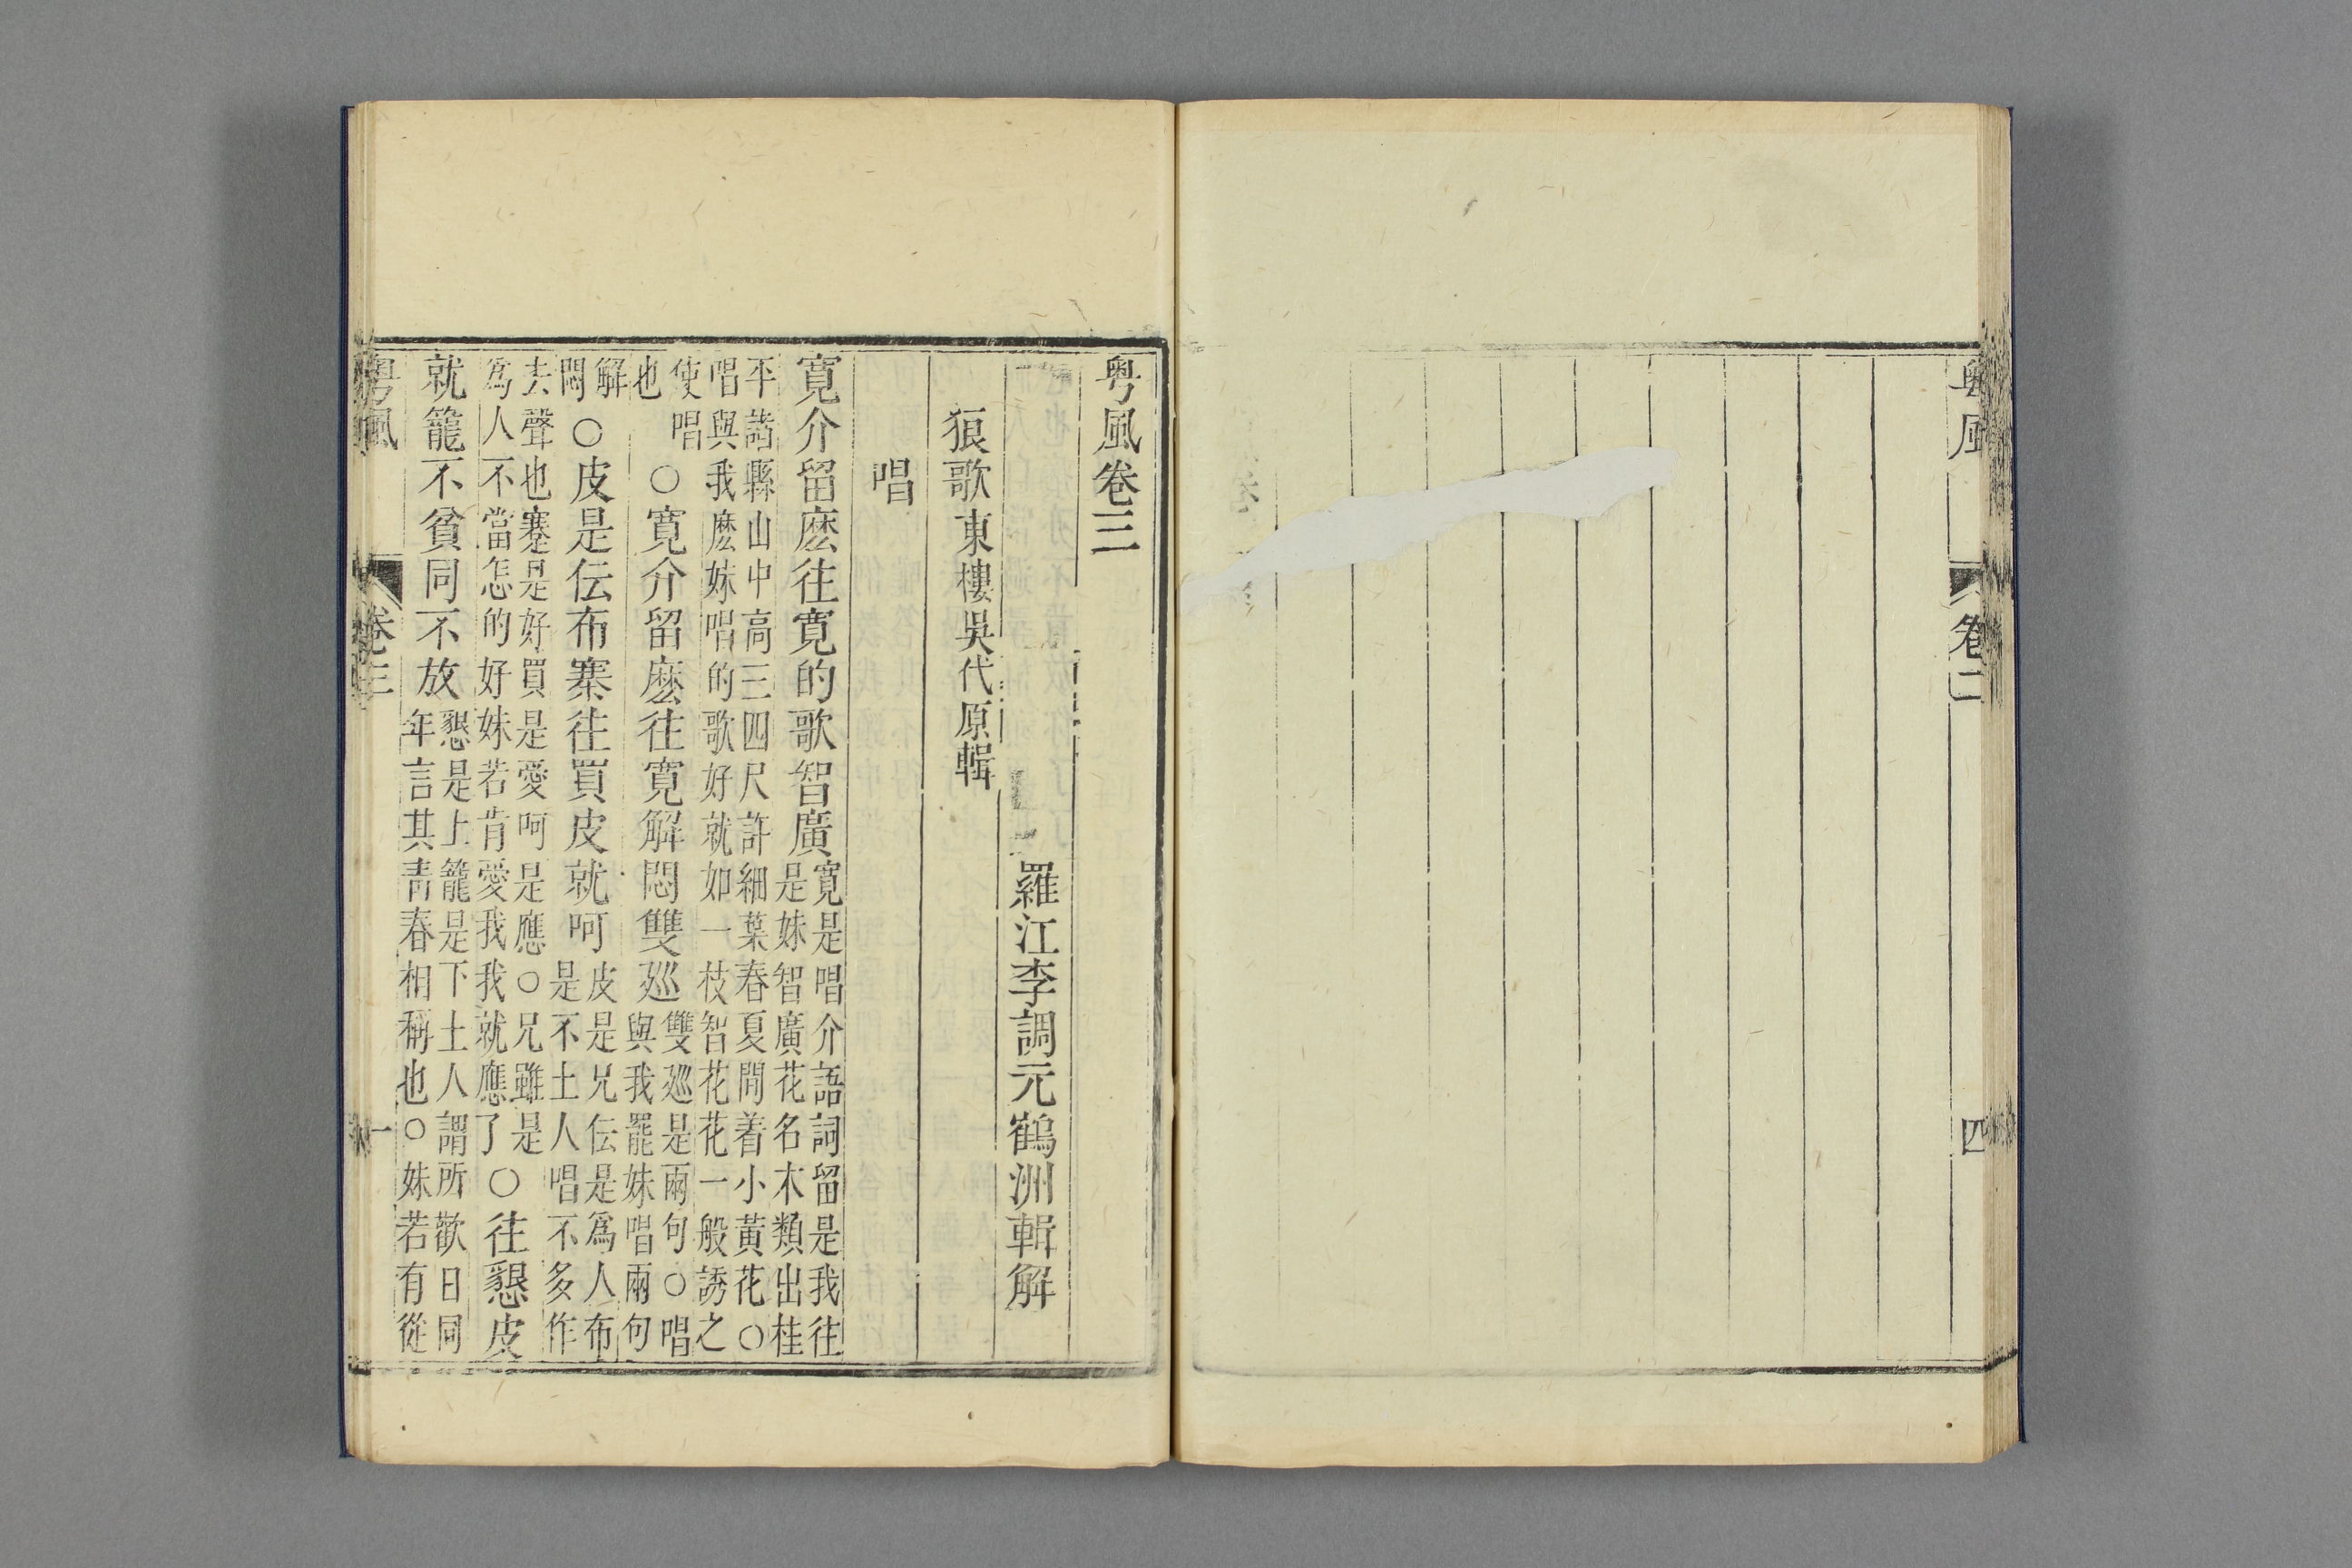 粤風
卷二
四
粤風卷三
羅江李調元鶴洲輯解
狼歌東樓吳代原輯
唱
寛介留庅往寛的歌智廣寛是唱介語詞留是我往
是妹智廣花名木類出桂
平諸縣山中高三四尺許細葉春夏間着小黃花○
唱與我庅妹唱的歌好就如一枝智花花一般誘之
使唱
也
○寛介留庅往寛解悶雙廵雙廵是兩句○唱
與我罷妹唱兩句
解
悶
○皮是伝布寨往買皮就呵皮是兄伝是爲人布
是不土人唱不多作
去聲也寨是好買是愛呵是應○兄雖是
爲人不當怎的好妹若肯愛我我就應了
○往懇皮
就籠不貧同不放懇是上籠是下土人謂所歡曰同
年言其靑春相稱也○妹若有從
粤風
卷三
一